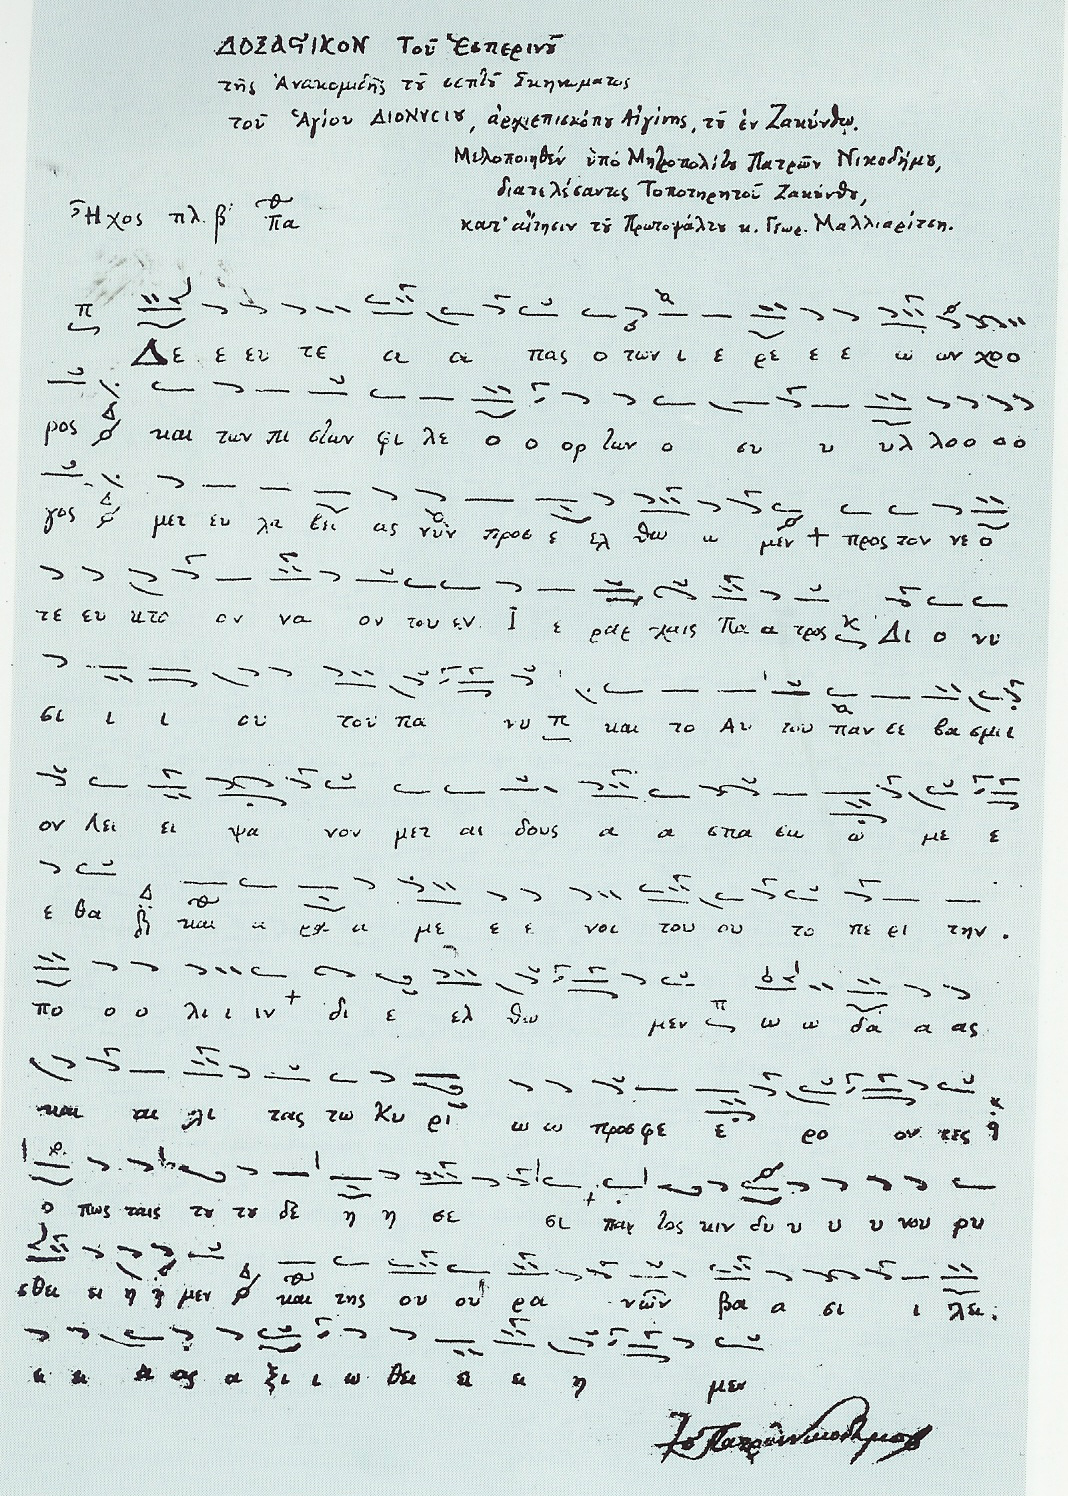 ΔΟΞΑΣΤΙΚΟΝ Τοῦ Ἑσπερινοῦ
τῆς Ἀνακομιδῆς τοῦ σεπτοῦ Σκηνώματος
τοῦ Ἁγίου ΔΙΟΝΥΣΙΟΥ, ἀρχιεπισκόπου Αἰγίνης, τοῦ ἐν Ζακύνθῳ.
Μελοποιηθέν ὑπό Μητροπολίτου Πατρῶν Νικοδήμου,
διατελέσαντος Τοποτηρητοῦ Ζακύνθου,
Ἦχος πλ. β΄ Πα
κατ' αἴτησιν τοῦ Πρωτοψάλτου κ. Γεωρ. Μαλλιαρίτση.
Δε ε ευ τε α α πας ο των ι ε ρε ε ε ω ων χο ο
ρος Δ και των πι στων φι λε ο ο ορ των ο συ υ υλ λο ο ο ο
γος Δ μετ ευ λα βει ας νῦν προσ ε ελ θω μεν προς τον νε ο
τε ευ κτο ον να ον του εν Ι ε ραρ χαις Πα α τρος Δι ο νυ
σι ι ι ου του πα νυ π και το Αυ του παν σε βα σμι ι
ον Λει ει ψα νον μετ αι δους α α σπα σω ω με ε
ε θα Δ και α ρχ με ε ε νοι του ου το πε ρι την
πο ο ο λι ι ιν δι ε ελ θω μεν π ω ω δα α ας
και λι τας τω Κυ ρι ω ω προσ φε ε ρο ον τες
ο πως ταις του του δε η η σε σι παν τος κιν δυ υ υ υ νου ρυ
σθει ει η η μεν Δ και της ου ου ρα νῶν βα α σι ι λει
ας α ξι ι ω θει ει η μεν
Ὁ Πατρῶν Νικόδημος